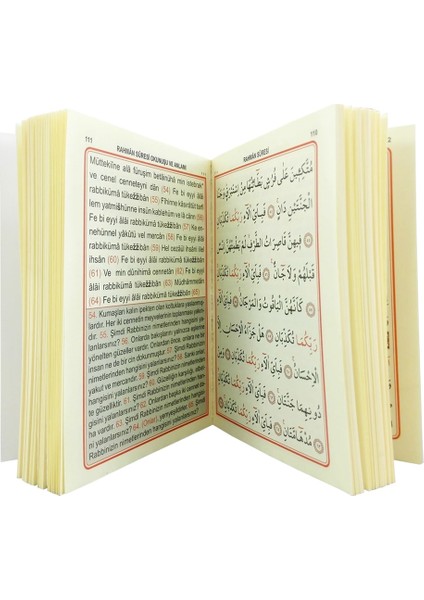 111
RAHMÂN SÛRESİ OKUNUŞU VE ANLAMI
Müttekiîne alâ furuşim betâinühâ min istebrak'
ve cenel cenneteyni dân (54) Fe bi eyyi âlâi
rabbikümâ tükezzibân (55) Fîhinne kâsırâtüt tarfi
lem yatmishünne insün kablehüm ve lâ cânn (56)
Fe bi eyyi âlâi rabbikümâ tükezzibân (57) Ke
ennehünnel yâkûtü vel mercân (58) Fe bi eyyi âlâi
rabbikümâ tükezzibân (59)
ihsân (60) Fe bi eyyi âlâi rabbikümâ tükezzibân
(61) Ve min dûnihimâ cennetân (62) Fe bi eyyi
âlâi rabbikümâ tükezzibân (63) Müdhâmmetân
(64) Fe bi eyyi âlâi rabbikümâ tükezzibân (65)
54. Kumaşları kalın ipekten olan koltuklara yaslanmış
lardır. Her iki cennetin meyvelerinin toplanması yakın
dır. 55. Şimdi Rabbinizin nimetlerinden hangisini ya
lanlarsınız? 56. Onlarda bakışlarını yalnızca eşlerine
yönelten güzeller vardır. Onlardan önce, bunlara ne
insan ne de bir cin dokunmuştur. 57. Şimdi Rabbinizin
nimetlerinden hangisini yalanlarsınız? 58. Sanki onlar
yakut ve mercandır. 59. Şimdi Rabbinizin nimetlerinden
hangisini yalanlarsınız? 60. Güzelliğin karşılığı, elbet
te güzelliktir. 61. Şimdi Rabbinizin nimetlerinden hangisi
ni yalanlarsınız? 62. Onlardan başka iki cennet da
ha vardır. 63. Şimdi Rabbinizin nimetlerinden hangisi
ni yalanlarsınız? 64. (Onlar), yemyeşildirler. 65. Şimdi
Rabbinizin nimetlerinden hangisini yalanlarsınız?
110
RAHMÂN SÛRESİ
مُتَّكِـِٔينَ عَلٰى فُرُشٍ بَطَٓائِنُهَا مِنْ اِسْتَبْرَقٍ وَجَنَا
الْجَنَّتَيْنِ دَانٍ ﴿٥٤﴾ فَبِاَيِّ اٰلَٓاءِ رَبِّكُمَا تُكَذِّبَانِ ﴿٥٥﴾
فِيهِنَّ قَاصِرَاتُ الطَّرْفِ لَمْ يَطْمِثْهُنَّ اِنْسٌ
قَبْلَهُمْ وَلَا جَٓانٌّ ﴿٥٦﴾ فَبِاَيِّ اٰلَٓاءِ
رَبِّكُمَا تُكَذِّبَانِ ﴿٥٧﴾ كَاَنَّهُنَّ الْيَاقُوتُ وَالْمَرْجَانُ ﴿٥٨﴾ فَبِاَيِّ اٰلَٓاءِ
رَبِّكُمَا تُكَذِّبَانِ ﴿٥٩﴾ هَلْ جَزَٓاءُ الْاِحْسَانِ اِلَّا
الْاِحْسَانُ ﴿٦٠﴾ فَبِاَيِّ اٰلَٓاءِ رَبِّكُمَا تُكَذِّبَانِ ﴿٦١﴾ وَمِنْ
دُونِهِمَا جَنَّتَانِ ﴿٦٢﴾ فَبِاَيِّ اٰلَٓاءِ رَبِّكُمَا تُكَذِّبَانِ ﴿٦٣﴾
مُدْهَٓامَّتَانِ ﴿٦٤﴾ فَبِاَيِّ اٰلَٓاءِ رَبِّكُمَا تُكَذِّبَانِ ﴿٦٥﴾